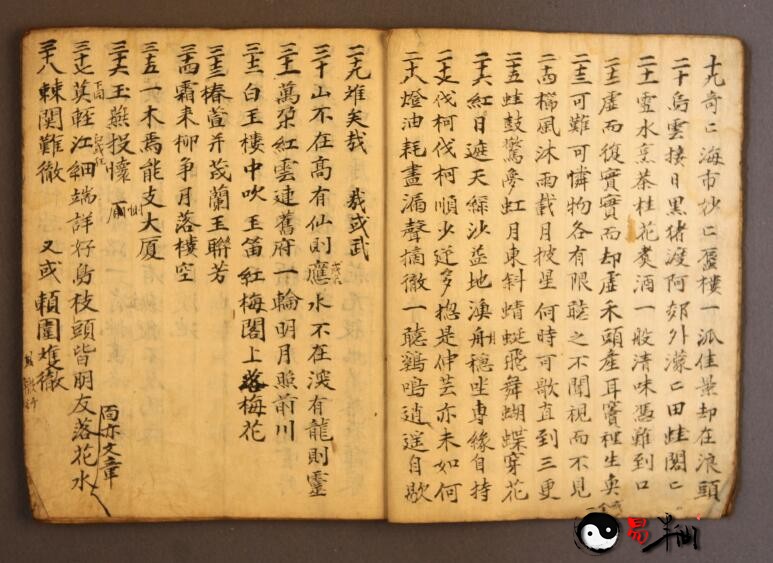 十九奇〻海市妙〻蜃樓一派佳景却在浪頭
二十烏雲接日黑猪渡河郊外濛〻田蛙閣〻
二十一雪水烹茶桂花煮酒一般清味憑誰到口
二十二虛而復實實而却虛禾頭產耳竇裡生魚
二十三可難可憐物各有限聽之不聞視而不見
二十四櫛風沐雨載月披星何時可歇直到三更
二十五蛙鼓驚夢虹月東斜蜻蜓飛舞蝴蝶穿花
二十六紅日遮天綠沙益地漁舟穩坐專緣自持
二十七伐柯伐柯順少逆多揔是仲芸亦未如何
二十八燈油耗盡漏聲摘徹一聽鷄鳴逍遥自歇
二十九难矣哉 哉或武
三十山不在高有仙則應水不在深有龍則靈
三十一萬朶紅雲連舊府一輪明月照前川
三十二白玉樓中吹玉笛紅梅閣上落梅花
三十三椿萱并茂蘭玉聯芳
三十四霜來柳争月落樓空
三十五一木焉能支大厦
三十六玉燕投懷
三十七莫輕江細端詳好鳥枝頭皆朋友落花水
面亦文章
三十八棘闈難徹 又或頼圍难徹
易半仙